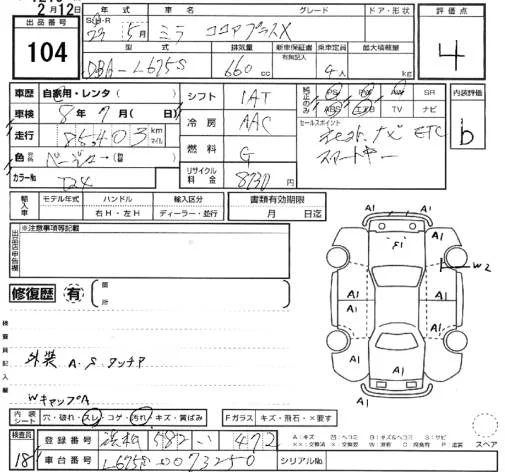 2月12日
出品番号
104
S・H・R 年式 車名 グレード ドア・形状
23 5月 ミラ ココアプラスX
型式 排気量 新車保証書 有無記入 乗車定員 最大積載量
DBA-L675S 660cc 4人 kg
評価点
4
車歴 自家用・レンタ
車検 8年7月( 日)
走行 85403 km マイル
色 ベージュ→(
カラーNo T24
シフト 1AT
冷房 AAC
燃料 G
リサイクル料金 8730
純正のみ PS PW AW SR
ABS エアB TV ナビ
セールスポイント
ナビ ETC
スマートキー
内装評価
b
輸入車 モデル年式 ハンドル 輸入区分
年 右H・左H ディーラー・並行
書類有効期限
月 日迄
出品店申告欄
※注意事項等記載
修復歴 有 箇所
検査員記入欄
外装 A.S.タッチア
WキャップA
内装シート 穴・破れ・スレ・コゲ・汚れ・キズ・黄ばみ
Fガラス キズ・飛石・×要す
検査員
18
登録番号 浜松 582 い 472
車台番号 L675S-0073250
シリアルNo.
A1 A1
F1
A1 A1 W2
A1 A1 A1
A1 A1
A1
A1 A1
スペア